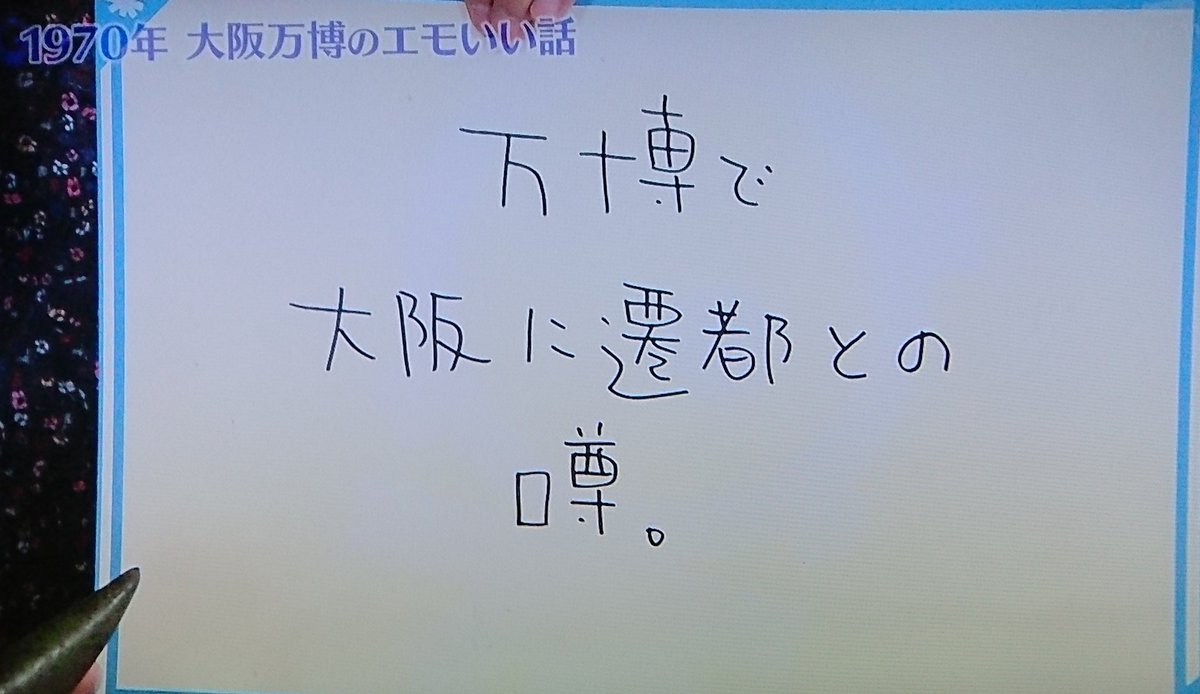 1970年 大阪万博のエモいい話
万博で
大阪に遷都との
噂。